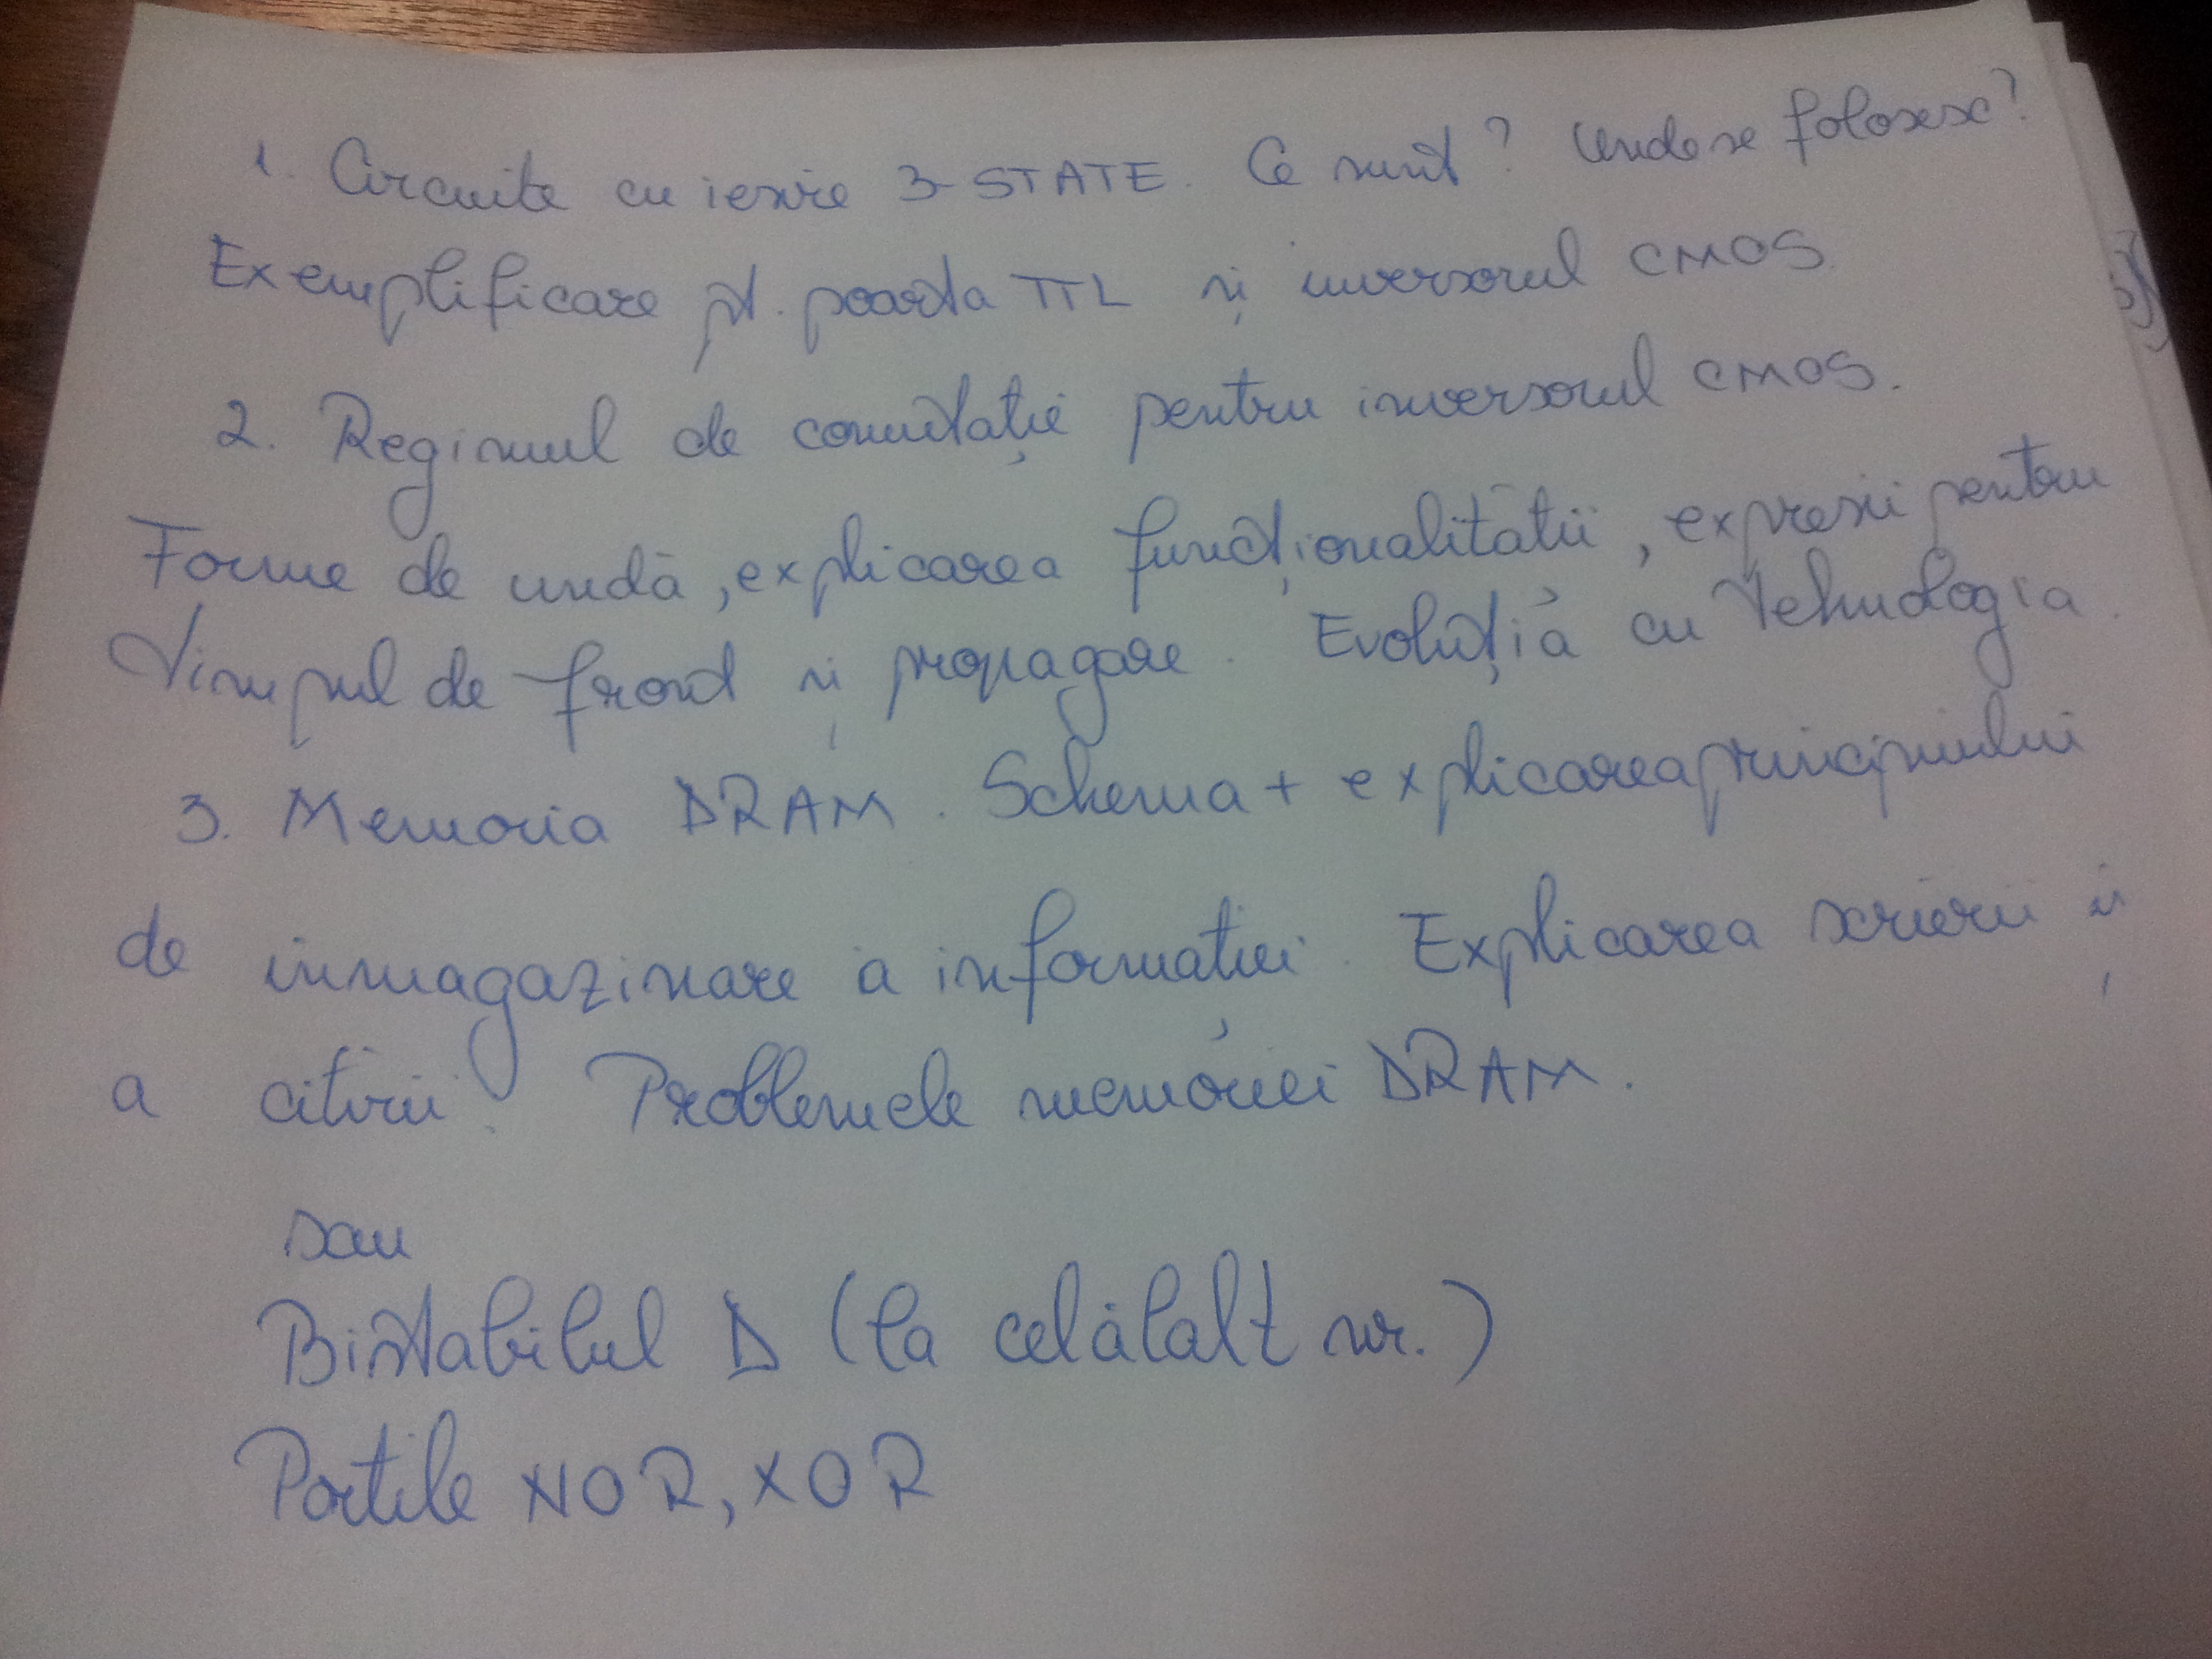 1. Circuite cu ieșire 3-STATE. Ce sunt? Unde se folosesc?
Exemplificare pt. poarta TTL și inversorul CMOS.
2. Regimul de comutație pentru inversorul CMOS.
Forme de undă, explicarea funcționalității, expresii pentru
timpul de front și propagare. Evoluția cu tehnologia.
3. Memoria DRAM. Schema + explicarea principiului
de inmagazinare a informației. Explicarea scrierii și
a citirii. Problemele memoriei DRAM.
sau
Bistabilul D (la celălalt nr.)
Portile NOR, XOR